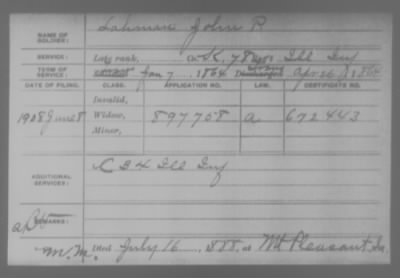 NAME OF SOLDIER: Lahman John R
SERVICE: Late rank, Co. K, 78 Reg't Ill Inf
TERM OF SERVICE: Enlisted Jan 7, 1864 Discharged Apr 26, 1864
DATE OF FILING. CLASS. APPLICATION NO. LAW. CERTIFICATE NO.
Invalid,
1908 June 8 Widow, 897758 a. 672443
Minor,
ADDITIONAL SERVICES: C 34 Ill Inf
REMARKS:
M.M. Died July 16, 888. at Mt Pleasant, Ia.